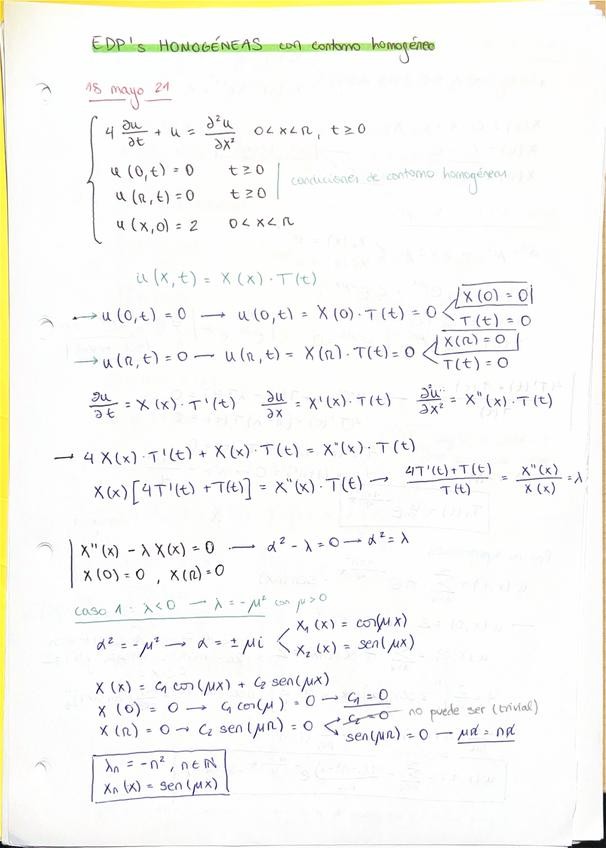 EDP's HOMOGÉNEAS con contorno homogéneo
18 mayo 21
4 ∂u/∂t + u = ∂²u/∂x² 0<x<π, t≥0
u(0,t) = 0 t≥0
u(π,t) = 0 t≥0 condiciones de contorno homogéneas
u(x,0) = 2 0<x<π
u(x,t) = X(x)·T(t)
→ u(0,t) = 0 → u(0,t) = X(0)·T(t) = 0 < X(0) = 0
T(t) = 0
→ u(π,t) = 0 → u(π,t) = X(π)·T(t) = 0 < X(π) = 0
T(t) = 0
∂u/∂t = X(x)·T'(t) ∂u/∂x = X'(x)·T(t) ∂²u/∂x² = X''(x)·T(t)
→ 4X(x)·T'(t) + X(x)·T(t) = X''(x)·T(t)
X(x)[4T'(t) + T(t)] = X''(x)·T(t) → 4T'(t)+T(t)/T(t) = X''(x)/X(x) = λ
X''(x) - λX(x) = 0 → α² - λ = 0 → α² = λ
X(0) = 0, X(π) = 0
caso 1: λ<0 → λ = -μ² con μ>0
α² = -μ² → α = ± μi < X₁(x) = cos(μx)
X₂(x) = sen(μx)
X(x) = C₁ cos(μx) + C₂ sen(μx)
X(0) = 0 → C₁ cos(μ) = 0 → C₁ = 0
X(π) = 0 → C₂ sen(μπ) = 0 < C₂ = 0 no puede ser (trivial)
sen(μπ) = 0 → μπ = nπ
λₙ = -n², n∈ℕ
Xₙ(x) = sen(μx)